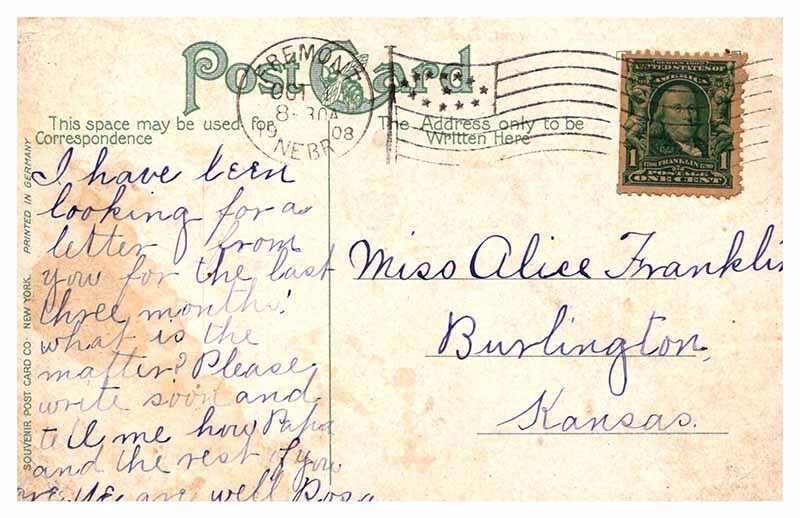 Post Card
FREMONT
OCT
8-30A
19 08
NEBR.
This space may be used for
Correspondence
The Address only to be
Written Here
UNITED STATES OF
AMERICA
1 1706 FRANKLIN 1790 1
POSTAGE
ONE CENT
SOUVENIR POST CARD CO. NEW YORK. PRINTED IN GERMANY
I have been
looking for a
letter from
you for the last
three months!
what is the
matter? Please
write soon and
tell me how Papa
and the rest of you
are. We are well Rosa
Miss Alice Franklin
Burlington,
Kansas.